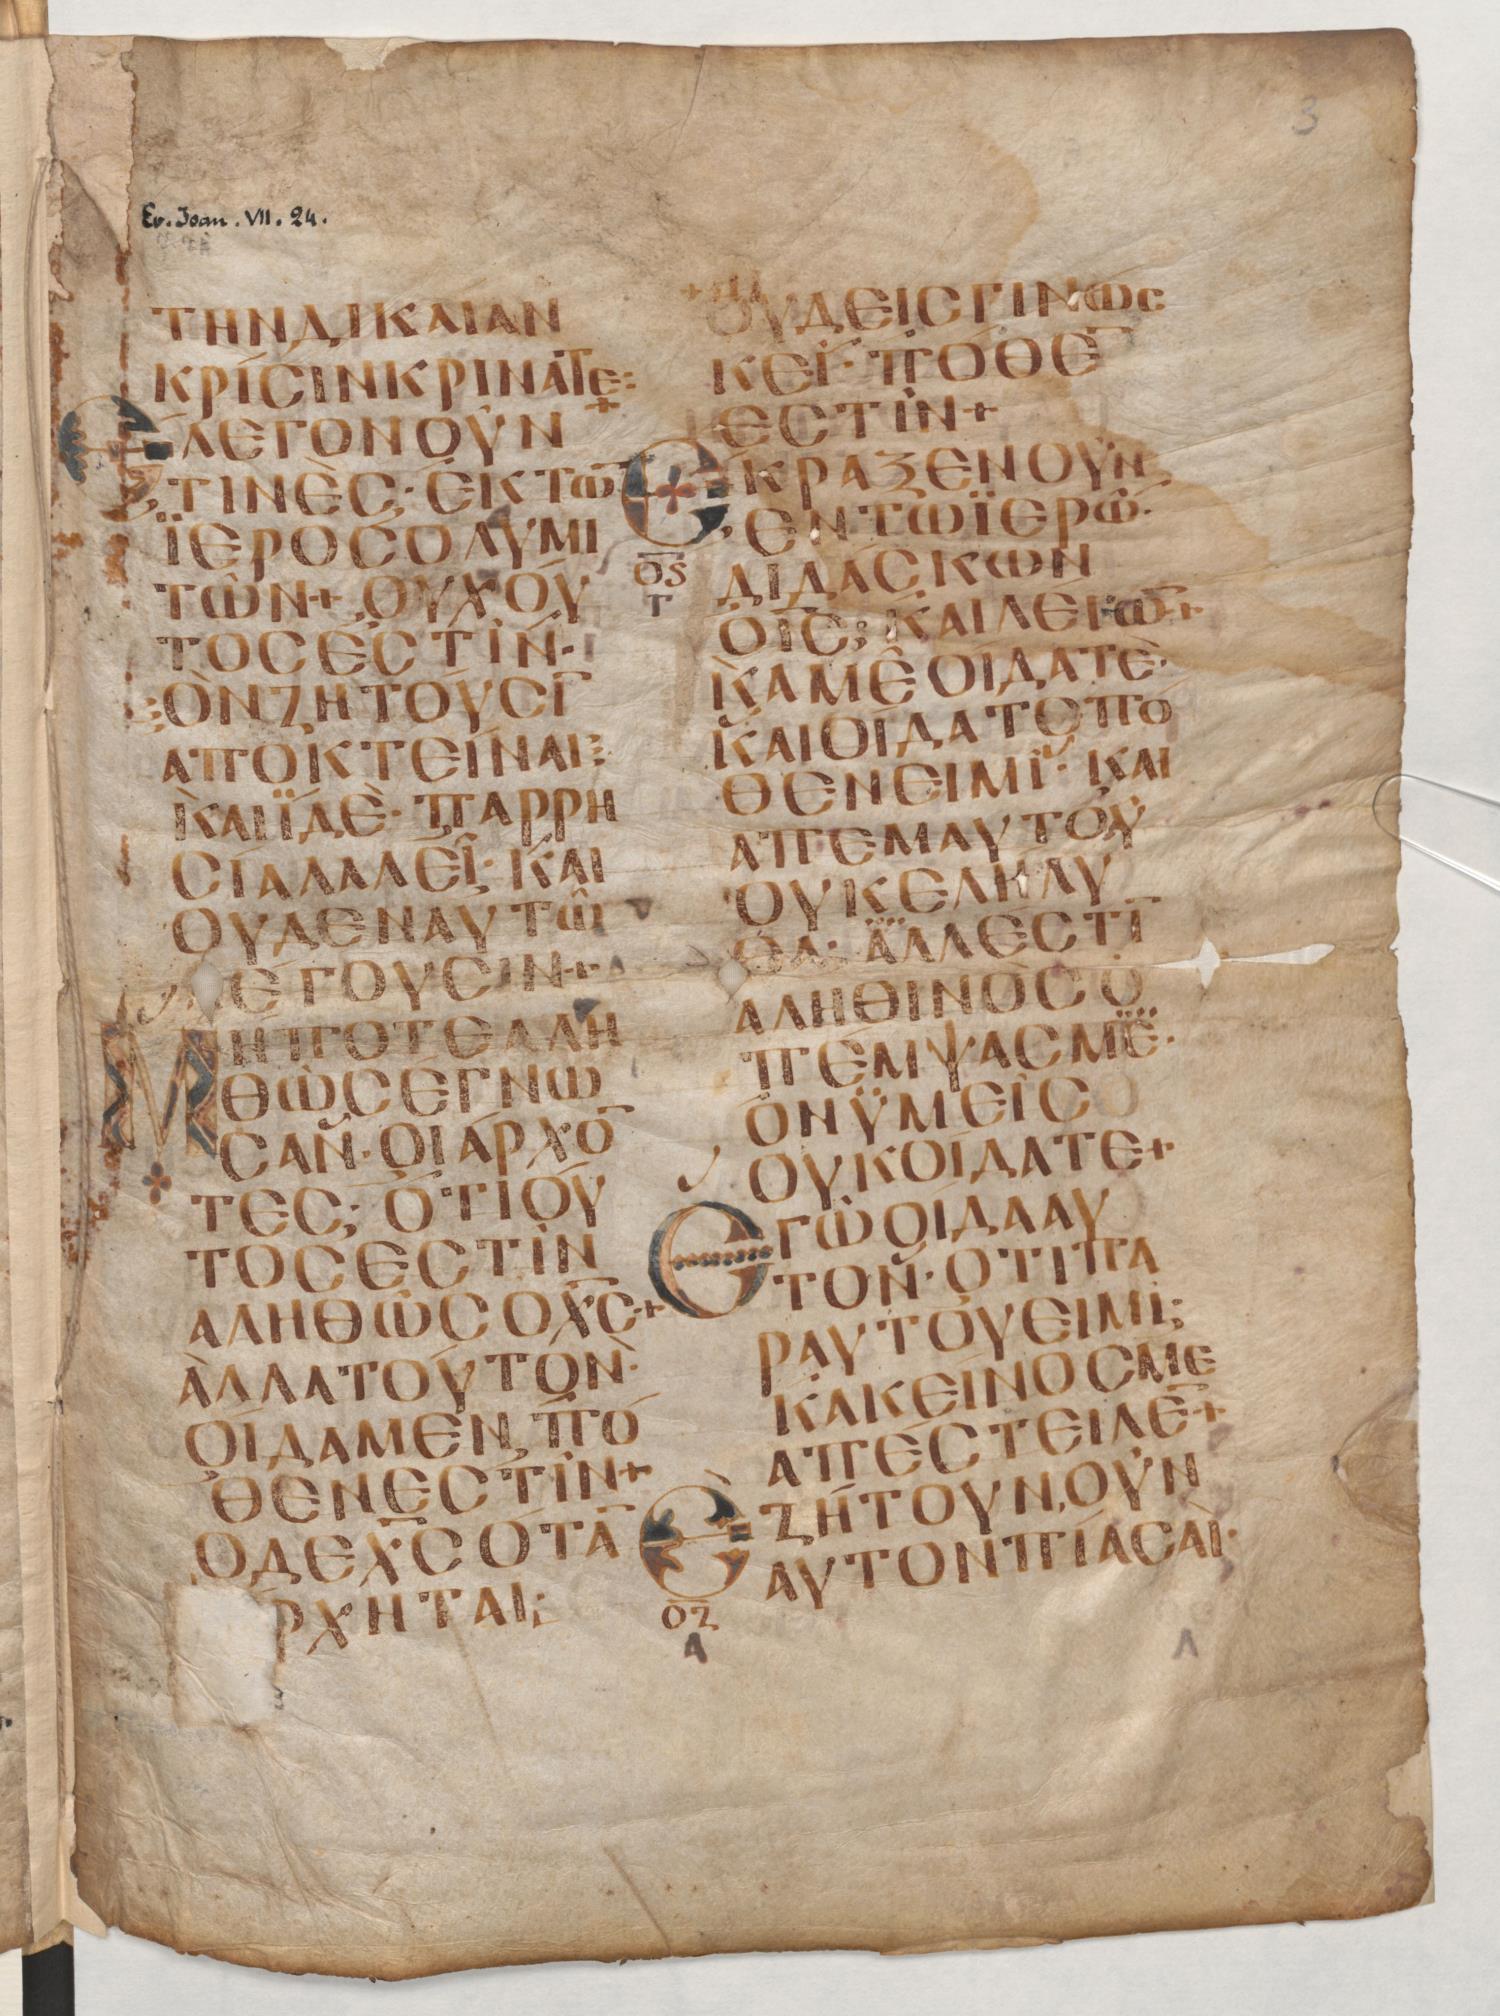 3
Ev. Joan. VII. 24.
ΤΗΝΔΙΚΑΙΑΝ
ΚΡΙϹΙΝΚΡΙΝΑΤΕ:+
ΕΛΕΓΟΝΟΥΝ
ΤΙΝΕϹ· ΕΚΤΩ̅
ΪΕΡΟϹΟΛΥΜΙ
ΤΩΝ+ ΟΥΧΟΥ
ΤΟϹΕϹΤΙΝ·
ΟΝΖΗΤΟΥϹΙ̅
ΑΠΟΚΤΕΙΝΑΙ:
ΚΑΙΪΔΕ· ΠΑΡΡΗ
ϹΙΑΛΑΛΕΙ· ΚΑΙ
ΟΥΔΕΝΑΥΤΩ
ΛΕΓΟΥϹΙΝ+
ΜΗΠΟΤΕΑΛΗ
ΘΩϹΕΓΝΩ
ϹΑΝ· ΟΙΑΡΧΟ̅
ΤΕϹ; ΟΤΙΟΥ
ΤΟϹΕϹΤΙΝ
ΑΛΗΘΩϹΟΧ̅Ϲ̅+
ΑΛΛΑΤΟΥΤΟΝ·
ΟΙΔΑΜΕΝ, ΠΟ
ΘΕΝΕϹΤΙΝ+
ΟΔΕΧ̅Ϲ̅ΟΤΑ̅
ΡΧΗΤΑΙ;
ΟΥΔΕΙϹΓΙΝΩϹ
ΚΕΙ· ΠΟΘΕ̅
ΕϹΤΙΝ+
ΕΚΡΑΖΕΝΟΥΝ
ΕΝΤΩΪΕΡΩ·
Ο̅Ϛ̅
Γ
ΔΙΔΑϹΚΩΝ
ΟΙ̅Ϲ̅; ΚΑΙΛΕΓΩ̅+
ΚΑΜΕΟΙΔΑΤΕ·
ΚΑΙΟΙΔΑΤΕΠΟ
ΘΕΝΕΙΜΙ· ΚΑΙ
ΑΠΕΜΑΥΤΟΥ
ΟΥΚΕΛΗΛΥ
ΘΑ· ΑΛΛΕϹΤΙ̅
ΑΛΗΘΙΝΟϹΟ
ΠΕΜΨΑϹΜΕ·
ΟΝΫΜΕΙϹ
ΟΥΚΟΙΔΑΤΕ+
ΕΓΩΟΙΔΑΑΥ
ΤΟΝ· ΟΤΙΠΑ
ΡΑΥΤΟΥΕΙΜΙ;
ΚΑΚΕΙΝΟϹΜΕ
ΑΠΕϹΤΕΙΛΕ̅+
ΕΖΗΤΟΥΝ,ΟΥΝ
ΑΥΤΟΝΠΙΑϹΑΙ·
Ο̅Ζ̅
Α
Λ